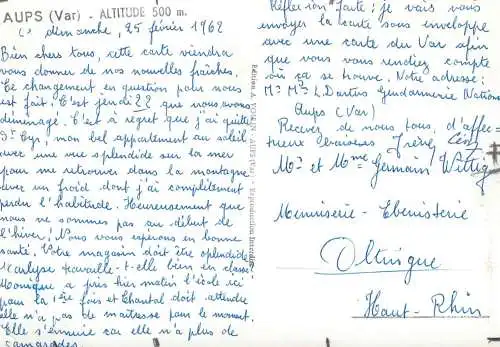 AUPS (Var) - ALTITUDE 500 m.
Ce dimanche, 25 février 1962
Bien chers tous, cette carte viendra
vous donner de nos nouvelles fraîches.
Le changement en question pour nous
est fait. C'est jeudi 22 que nous avons
déménagé. C'est à regret que j'ai quitté
St Cyr, mon bel appartement au soleil
avec une vue splendide sur la mer
pour me retrouver dans la montagne
avec un froid dont j'ai complètement
perdu l'habitude. Heureusement que
nous ne sommes pas au début de
l'hiver! Nous vous espérons en bonne
santé. Votre magasin doit être splendide
Marlyse travaille-t-elle bien en classe?
Monique a pris hier matin l'école ici
pour la 1ère fois et Chantal doit attendre
elle n'a pas de maîtresse pour le moment.
Elle s'ennuie car elle n'a plus de
camarades.
AUPS (Var) - Reproduction Interdite
Réflexion faite; je vais vous
envoyer la carte sous enveloppe
avec une carte du Var afin
que vous vous rendiez compte
où ça se trouve. Notre adresse:
Mr Me L Daris Gendarmerie Nationale
Aups (Var)
Recevez de nous tous, d'affec-
tueux baisers Irène
Mr et Mme Germain Wittig
Menuiserie - Ebénisterie
Oltingue
Haut-Rhin